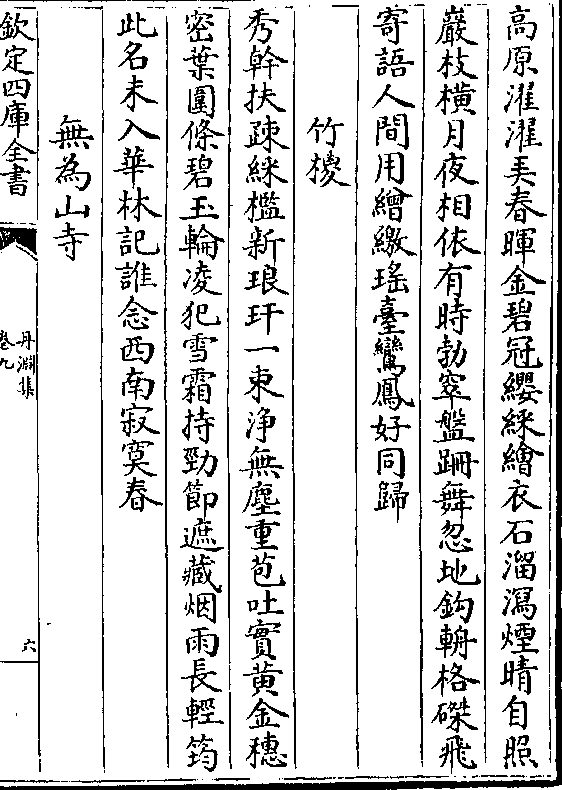 高原濯濯弄春暉金碧冠纓綵繪衣石溜瀉煙晴自照
巖枝橫月夜相依有時勃窣盤跚舞忽地鈎輈格磔飛
寄語人間用繒繳瑤臺鸞鳳好同歸
竹㯶
秀幹扶疎綵檻新琅玕一束淨無塵重苞吐實黃金穗
密葉圍條碧玉輪凌犯雪霜持勁節遮藏烟雨長輕筠
此名未入華林記誰念西南寂寞春
無為山寺
欽定四庫全書
丹淵集
卷九
六